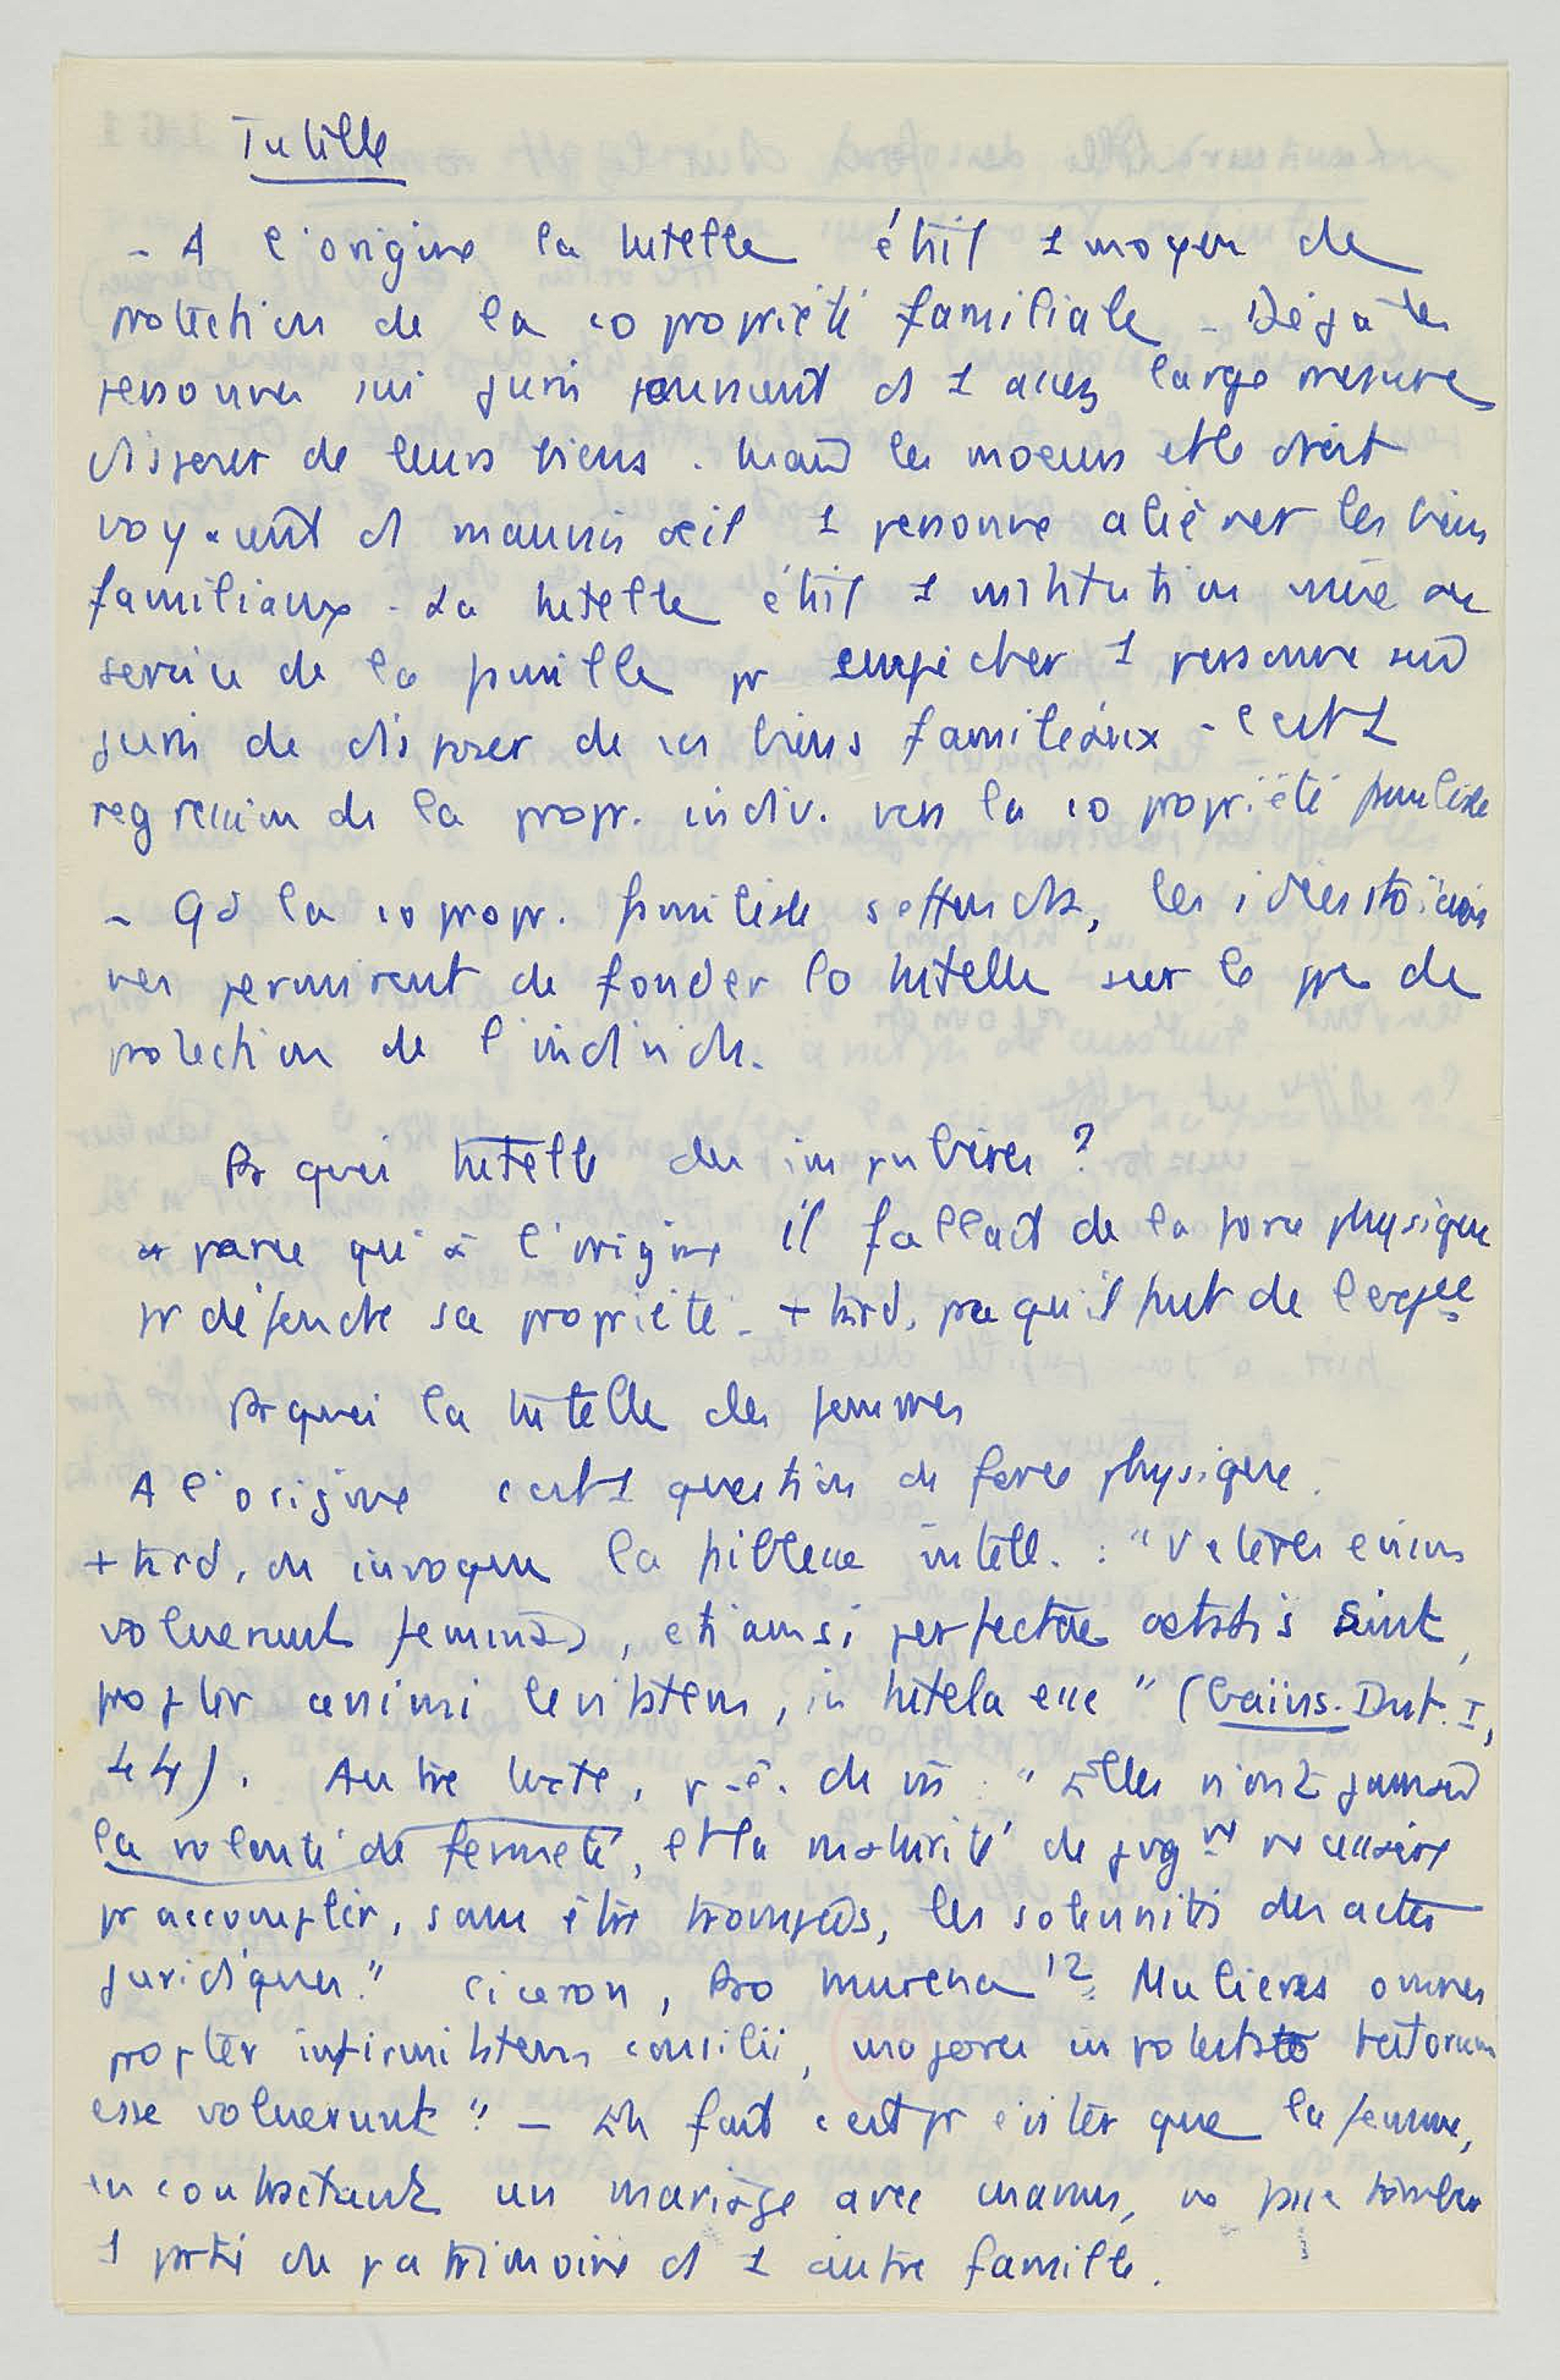 Tutelle
- A l'origine la tutelle était 1 moyen de
protection de la copropriété familiale - Déjà les
personnes sui juris pouvaient ds 1 assez large mesure
disposer de leurs biens. Mais les moeurs et le droit
voyaient d mauvais œil 1 personne aliéner les biens
familiaux - La tutelle était 1 institution mise au
service de la famille pr empêcher 1 personne sui
juris de disposer de ses biens familiaux - C'est 1
régression de la propr. indiv. vers la copropriété familiale
- Qd la copropr. familiale s'effondra, les idées stoïcien
nes permirent de fonder la tutelle sur le ppe de
protection de l'individu.
Pr quoi tutelle des impubères ?
parce qu'à l'origine il fallait de la force physique
pr défendre sa propriété. + tard, pce qu'il faut de l'exp^ce
Pr quoi la tutelle des femmes
A l'origine c'est 1 question de force physique.
+ tard, on invoque la faiblesse intell. : "Veteres enim
voluerunt feminas, etiamsi perfectae aetatis sint,
propter animi levitatem, in tutela esse" (Gaius. Inst. I,
44). Autre texte, p.-ê. du : "Elles n'ont jamais
la volonté de fermeté, et la maturité de jug^nt nécessaire
pr accomplir, sans être trompées, les solennités des actes
juridiques." Ciceron, Pro murena 12. Mulieres omnes
propter infirmitatem consilii, majores in potestate tutorum
esse voluerunt" - En fait c'est pr éviter que la femme,
en contractant un mariage avec manus, ne fasse tomber
1 partie du patrimoine ds 1 autre famille.